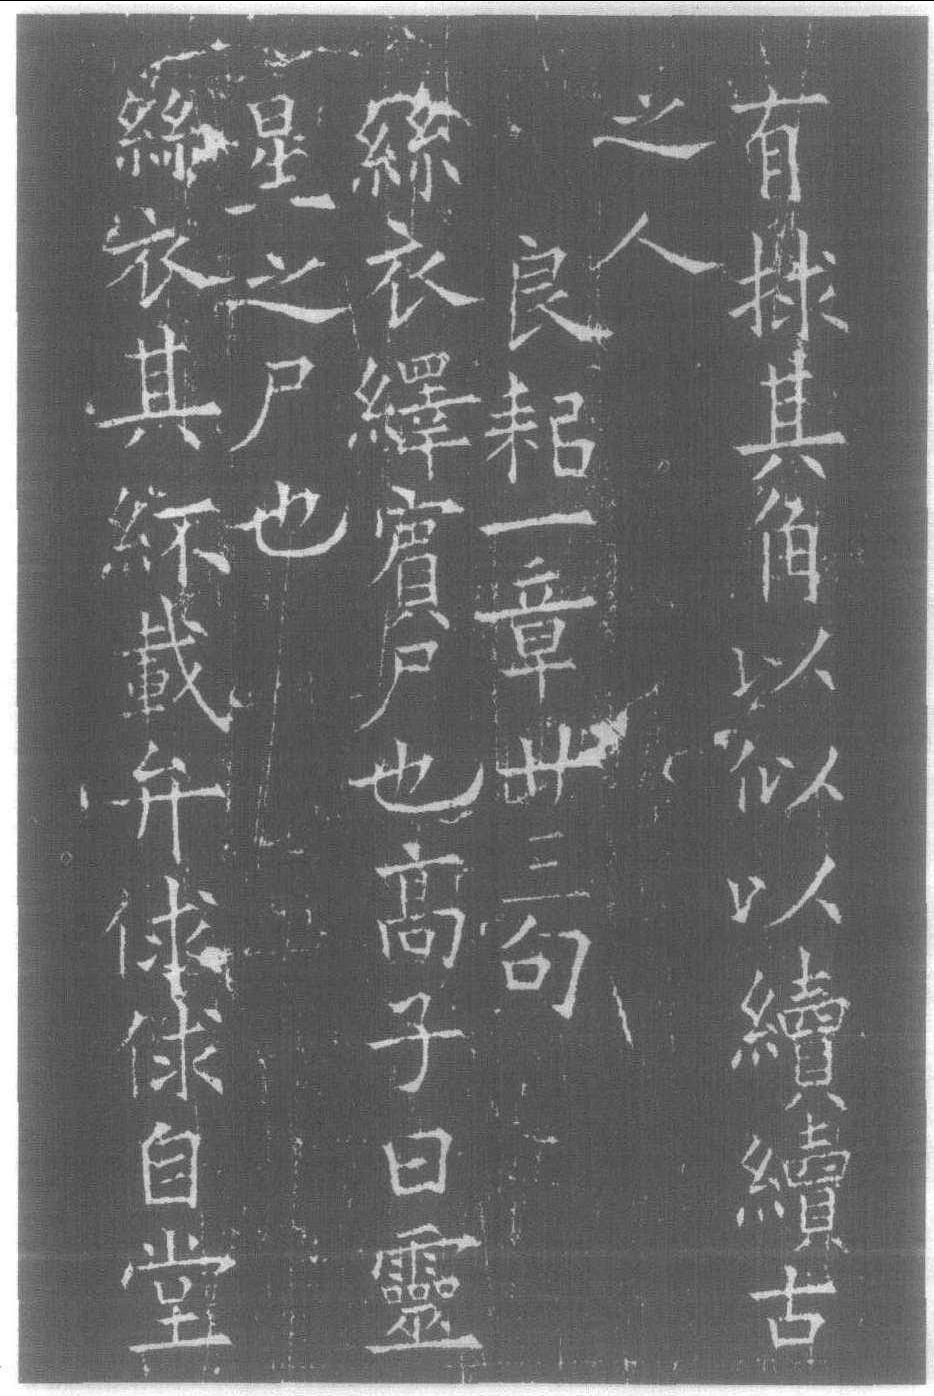 有捄其角以似以續續古
之人
良耜一章廿三句
絲衣繹賓尸也高子曰靈
星之尸也
絲衣其紑載弁俅俅自堂